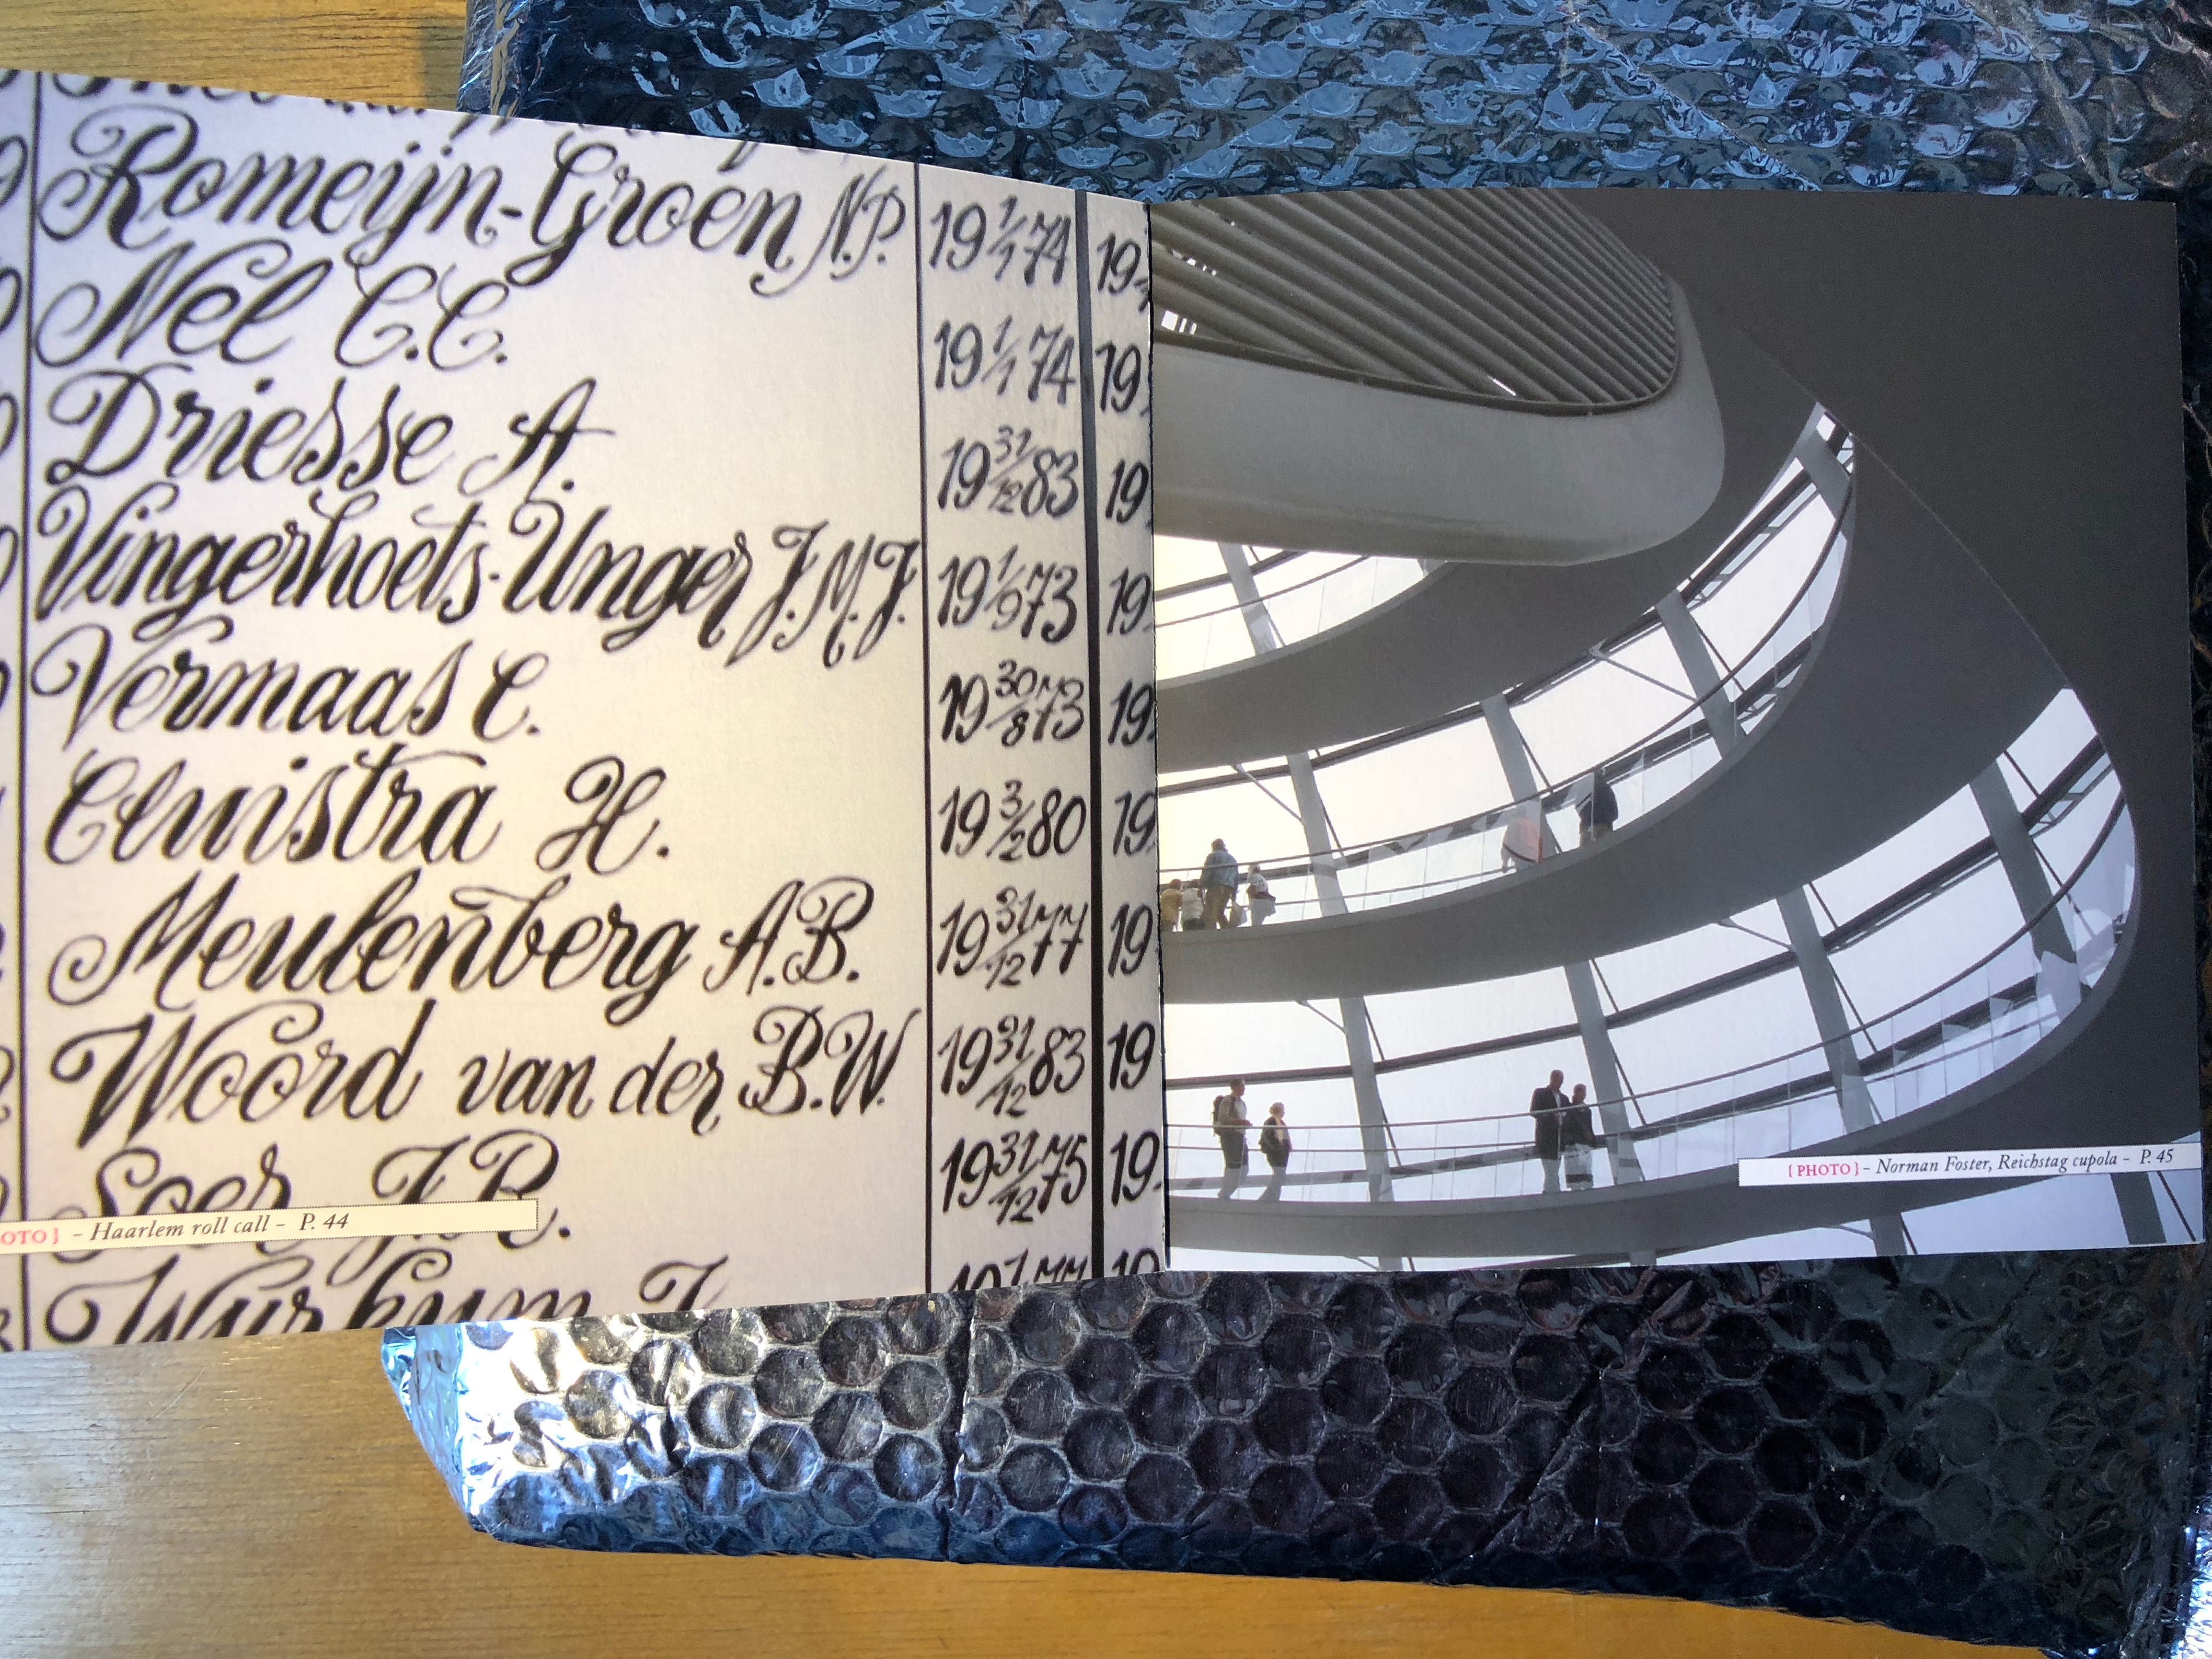 Romeijn-Groen N.P. 19 1/1 74 19
Nel C.C. 19 1/1 74 19
Driesse A. 19 31/12 83 19
Vingerhoets-Unger J.M.J. 19 1/9 73 19
Vermaas C. 19 30/8 73 19
Cluistra H. 19 3/2 80 19
Meulenberg A.B. 19 31/12 77 19
Woord van der B.W. 19 31/12 83 19
Soer J.B. 19 31/12 75 19
OTO } – Haarlem roll call – P. 44
Wijrkum J
{ PHOTO } – Norman Foster, Reichstag cupola – P. 45